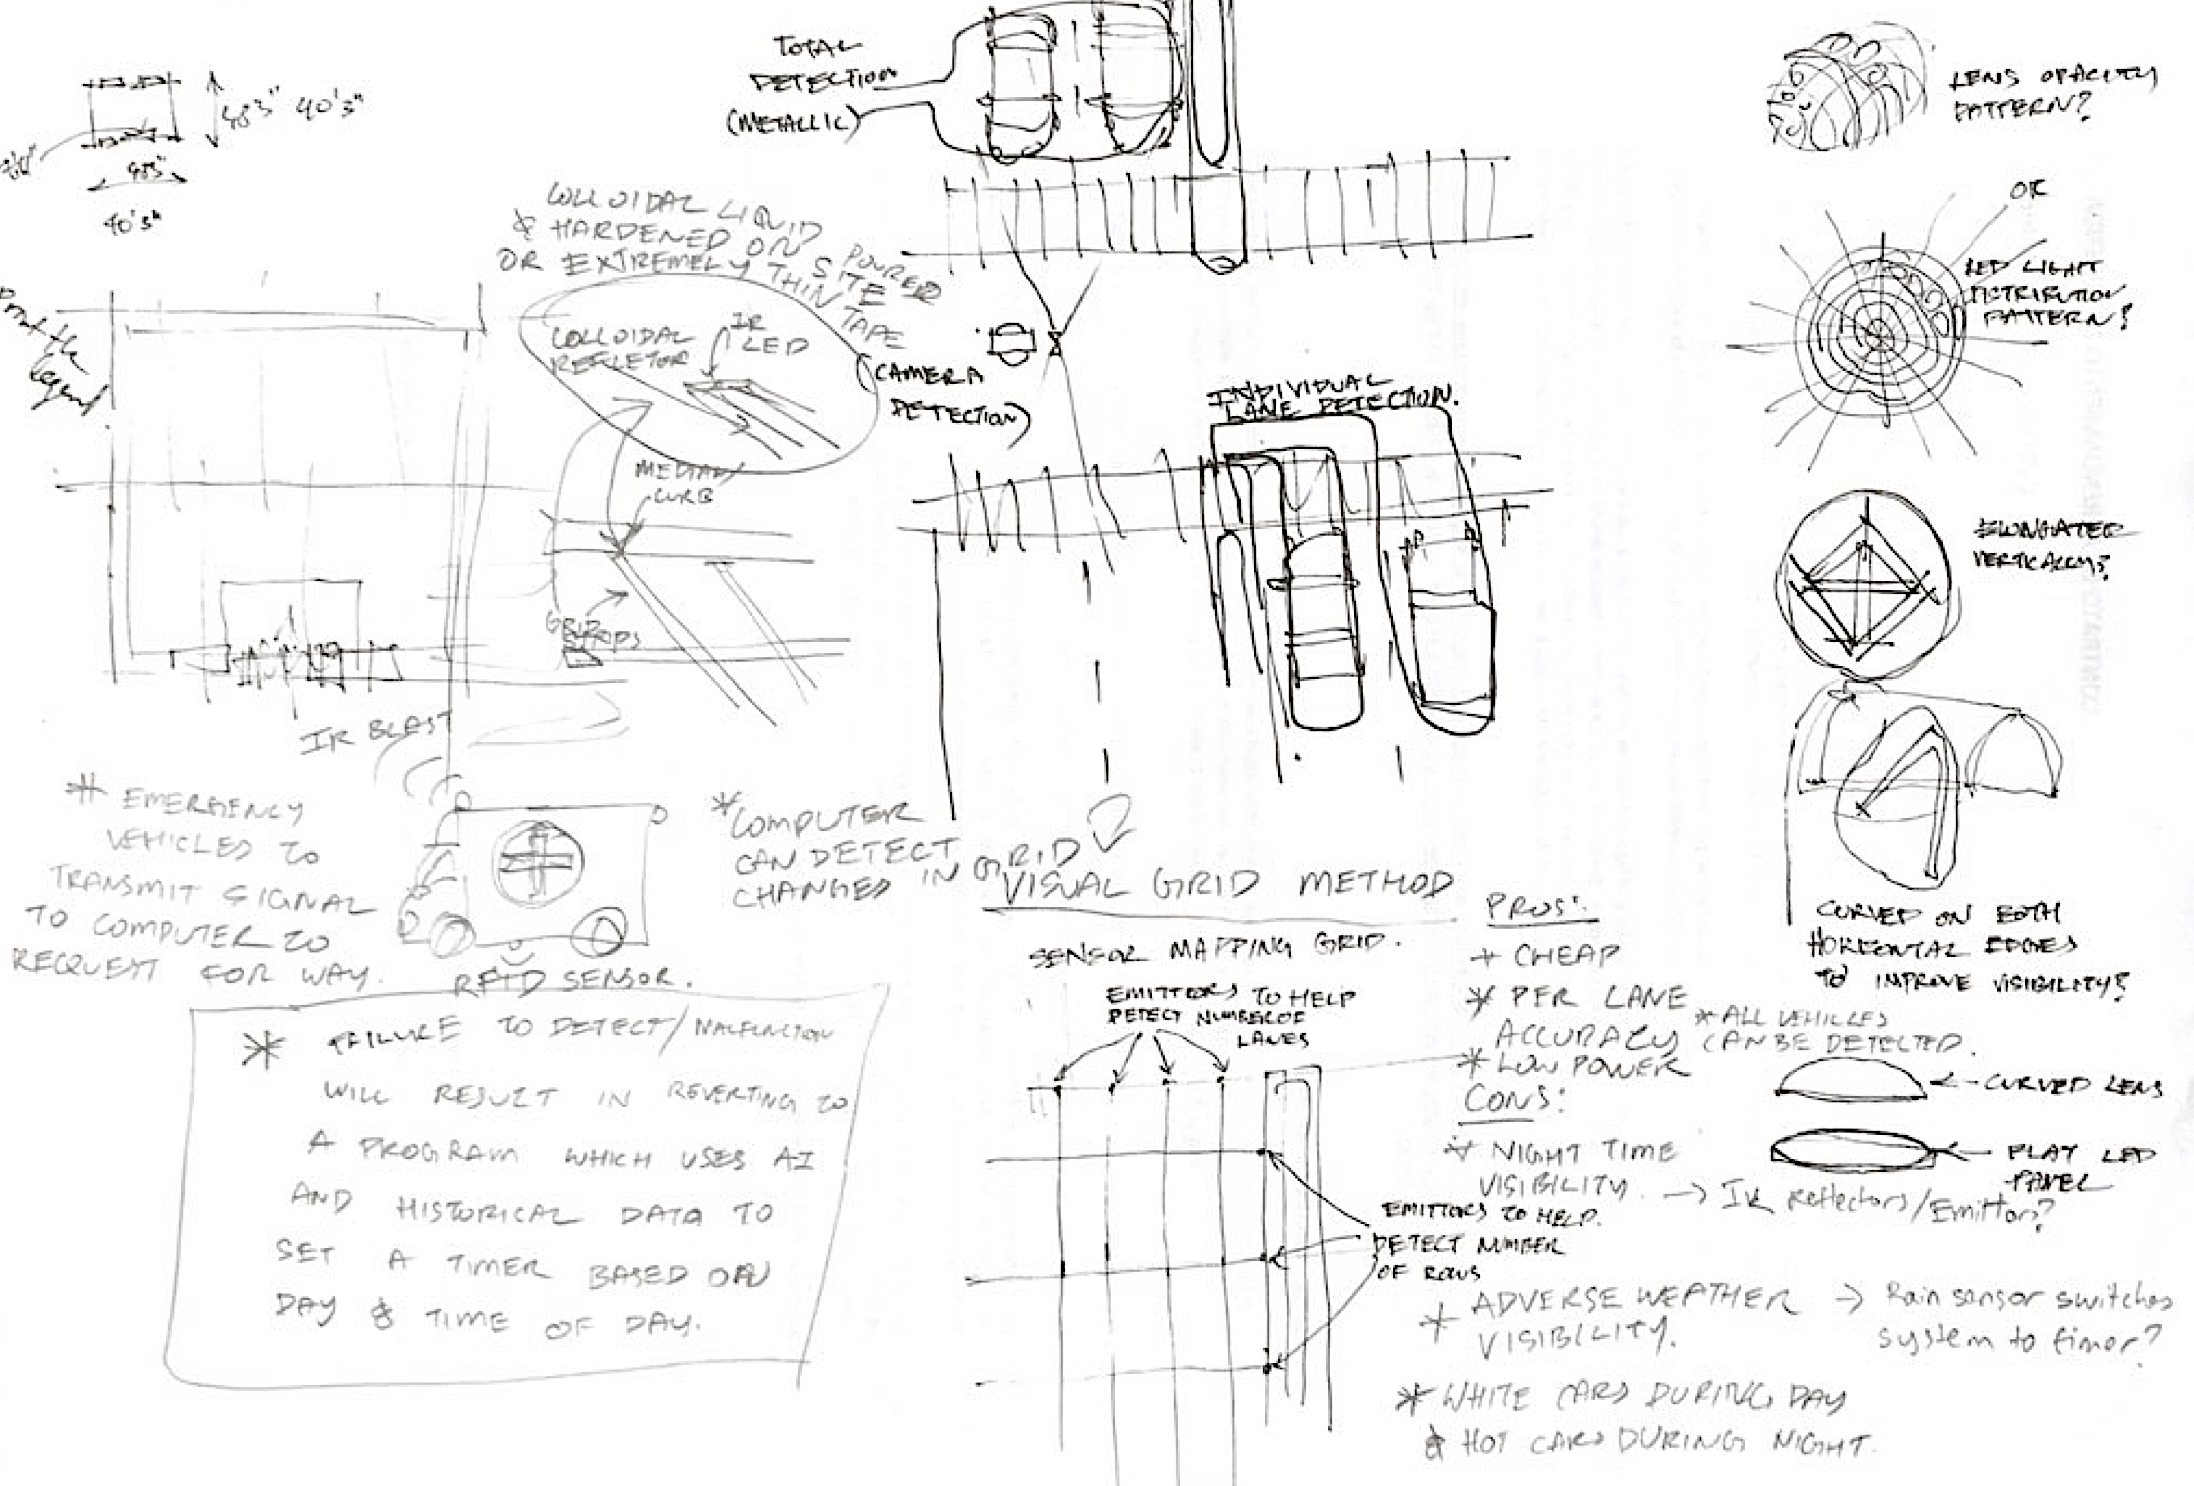 48'3" 40'3"
48'3"
40'3"
TOTAL
DETECTION
(METALLIC)
LENS OPACITY
PATTERN?
OR
LED LIGHT
DISTRIBUTION
PATTERN?
COLLOIDAL LIQUID POURED
& HARDENED ON SITE
OR EXTREMELY THIN TAPE
COLLOIDAL
REFLETOR
IR
LED
(CAMERA
DETECTION)
INDIVIDUAL
LANE DETECTION.
MEDIAN/
CURB
GRID
STRIPS
ELONGATED
VERTICALLY?
CURVED ON BOTH
HORIZONTAL EDGES
TO IMPROVE VISIBILITY?
IR BLAST
* EMERGENCY
VEHICLED TO
TRANSMIT SIGNAL
TO COMPUTER TO
REQUEST FOR WAY.
RFID SENSOR.
* COMPUTER
CAN DETECT
CHANGED IN GRID
VISUAL GRID METHOD
SENSOR MAPPING GRID.
EMITTORS TO HELP
DETECT NUMBER OF
LANES
EMITTORS TO HELP.
DETECT NUMBER
OF ROWS
PROS:
* CHEAP
* PER LANE
ACCURACY
* ALL VEHICLES
CAN BE DETECTED.
* LOW POWER
CONS:
* NIGHT TIME
VISIBILITY. → IR Reflectors/Emittors?
* ADVERSE WEATHER → Rain sensor switches
VISIBILITY. system to timer?
* WHITE CARS DURING DAY
& HOT CARS DURING NIGHT.
CURVED LENS
FLAT LED
PANEL
* FAILURE TO DETECT/MALFUNCTION
WILL RESULT IN REVERTING TO
A PROGRAM WHICH USES AI
AND HISTORICAL DATA TO
SET A TIMER BASED ON
DAY & TIME OF DAY.